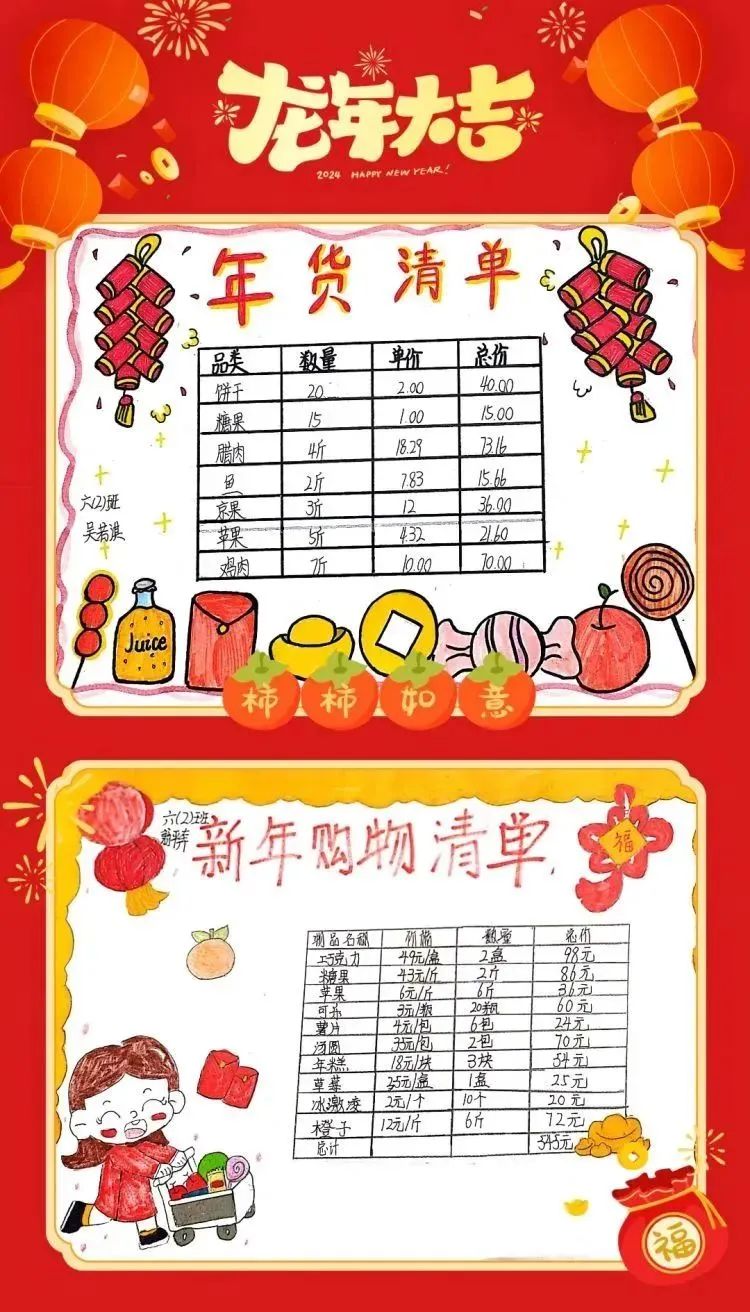 龙年大吉
2024 HAPPY NEW YEAR!
年货清单
品类 数量 单价 总价
饼干 20 2.00 40.00
糖果 15 1.00 15.00
腊肉 4斤 18.29 73.16
鱼 2斤 7.83 15.66
京果 3斤 12 36.00
苹果 5斤 4.32 21.60
鸡肉 7斤 10.00 70.00
六(2)班
吴若淇
Juice
柿柿如意
六(2)班
新年购物清单
福
物品名称 价格 数量 总价
巧克力 49元/盒 2盒 98元
糖果 43元/斤 2斤 86元
苹果 6元/斤 6斤 36元
可乐 3元/瓶 20瓶 60元
薯片 4元/包 6包 24元
汤圆 35元/包 2包 70元
年糕 18元/块 3块 54元
草莓 25元/盒 1盒 25元
冰激凌 2元/个 10个 20元
橙子 12元/斤 6斤 72元
总计 545元
福